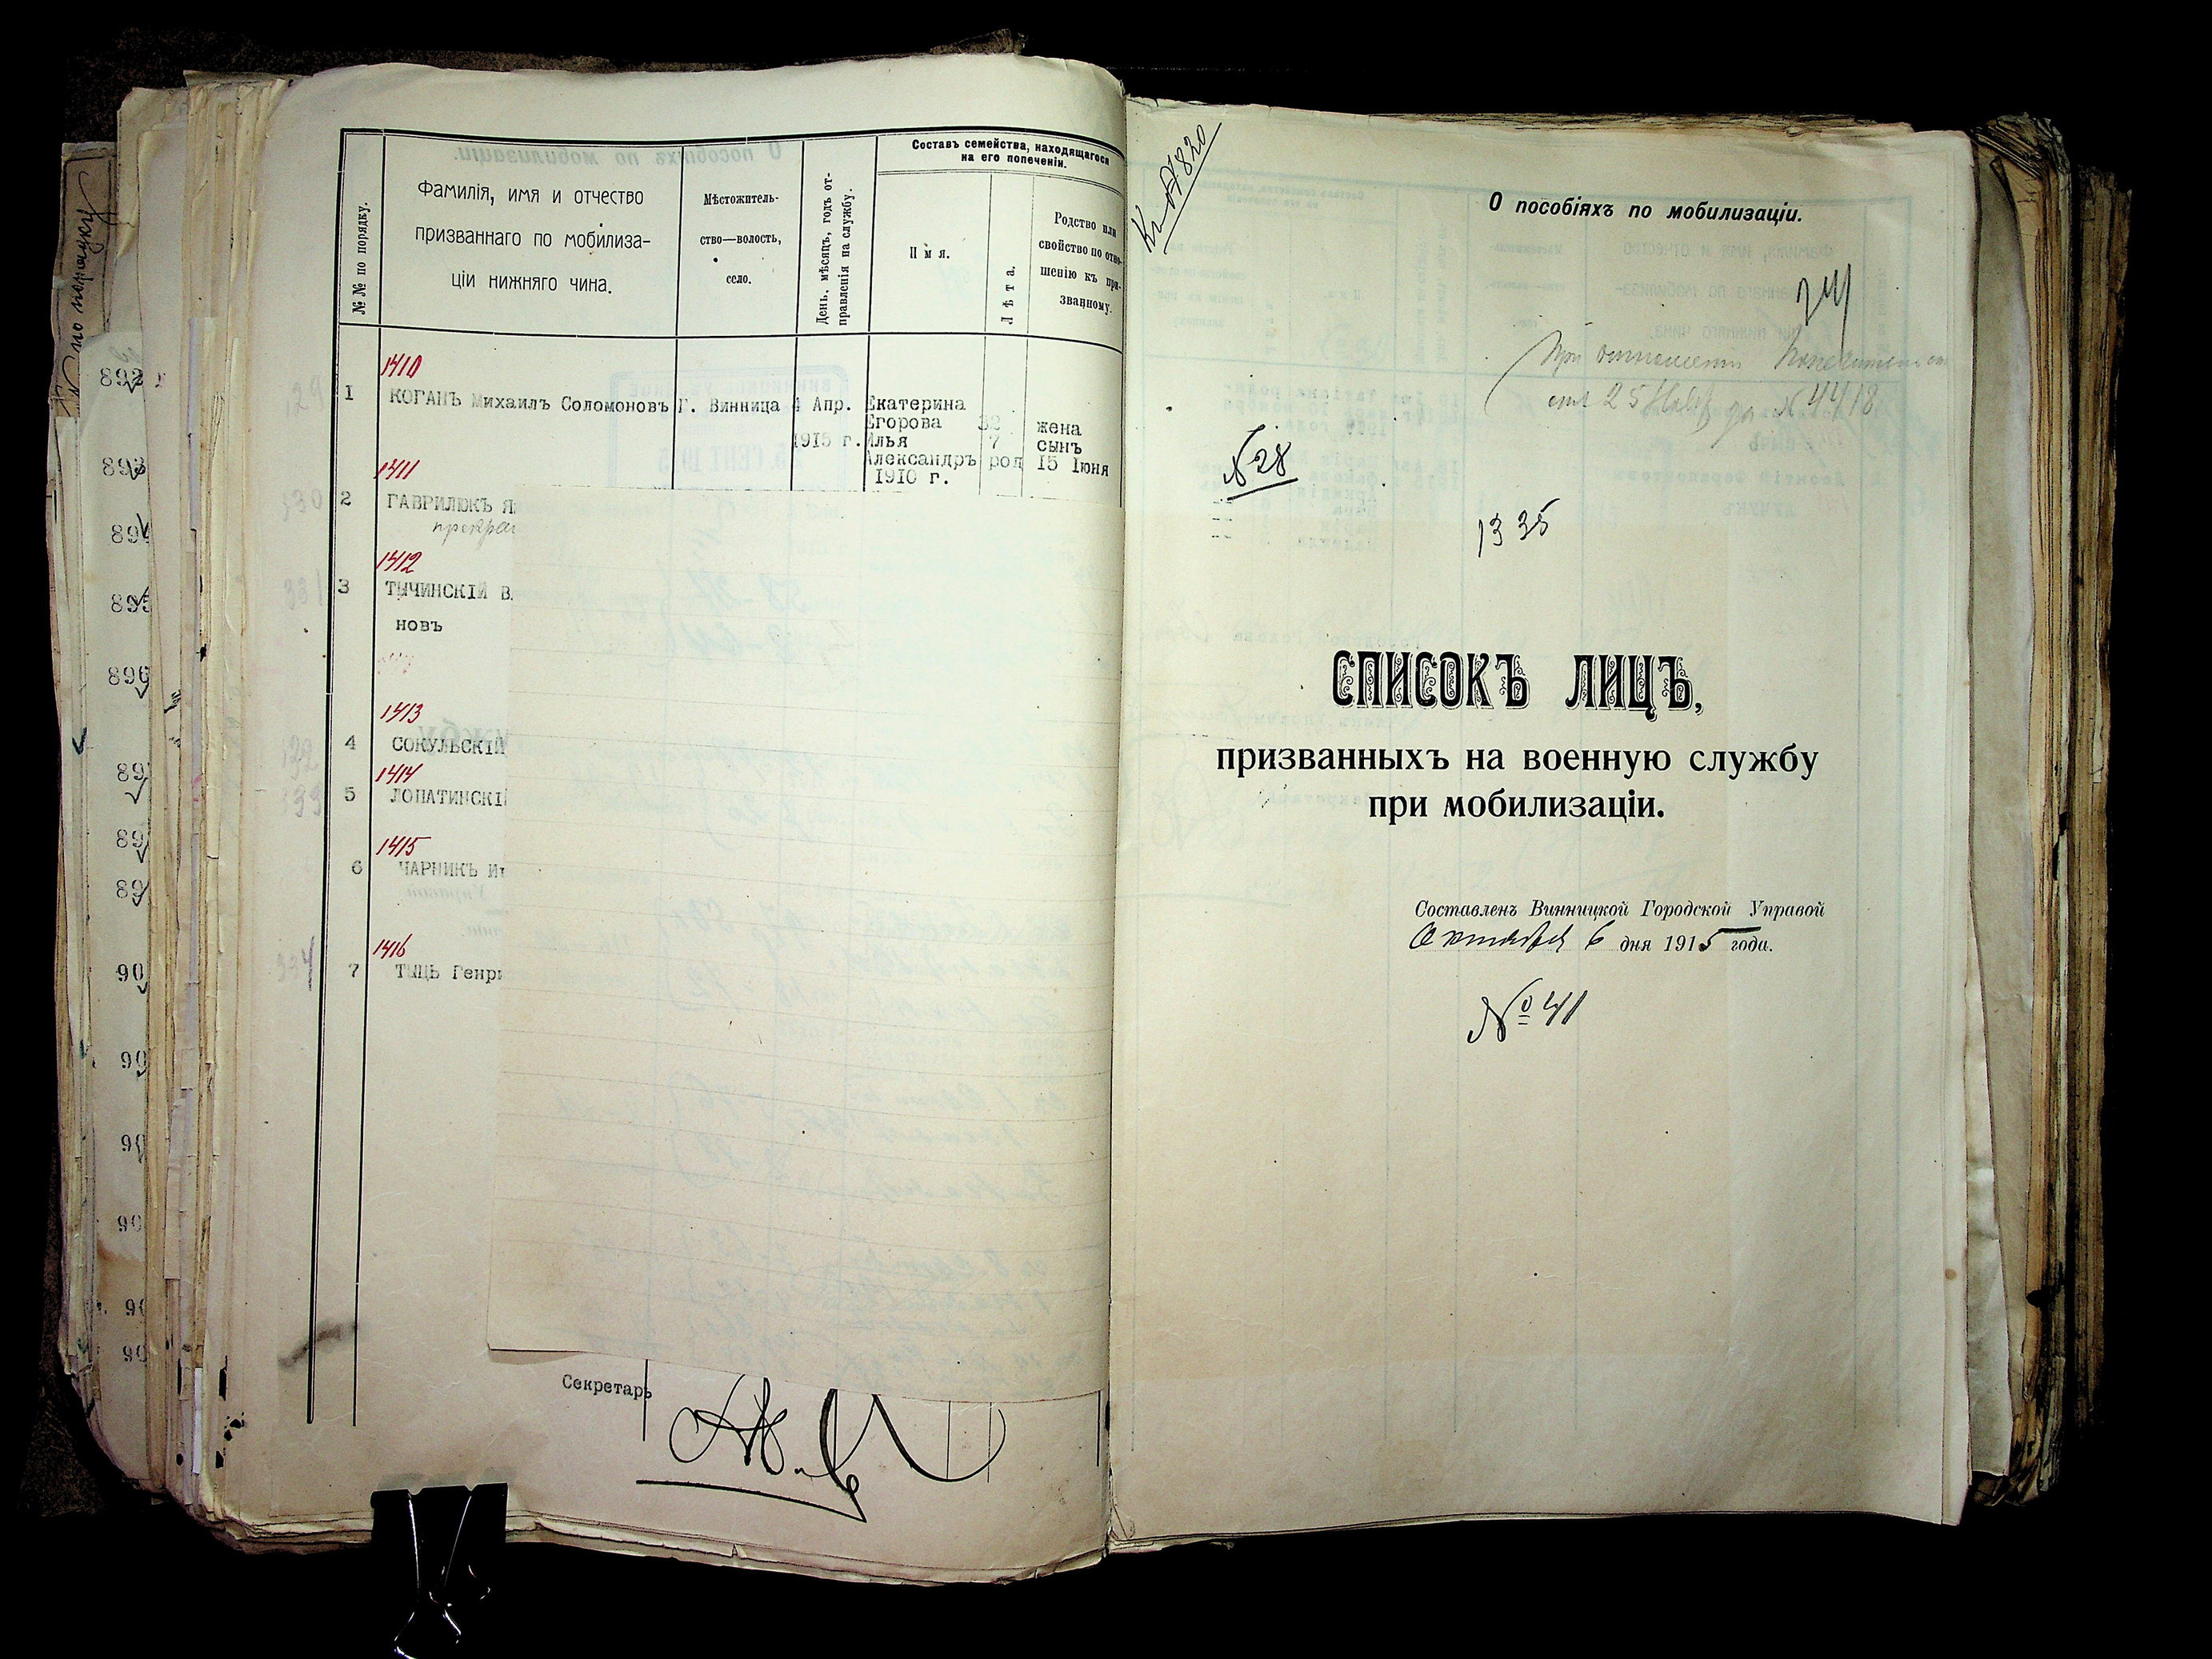 №№ по порядку.
Фамилія, имя и отчество
призваннаго по мобилиза-
ціи нижняго чина.
Мѣстожитель-
ство—волость,
село.
День, мѣсяцъ, годъ от-
правленія на службу.
Составъ семейства, находящагося
на его попеченіи.
Имя.
Лѣта.
Родство или
свойство по отно-
шенію къ при-
званному.
1410
1 КОГАНЪ Михаилъ Соломоновъ Г. Винница 4 Апр. Екатерина
Егорова 32 жена
1915 г. Илья 7 сынъ
Александръ род 15 Іюня
1910 г.
1411
2 ГАВРИЛЮКЪ Я
1412
3 ТЫЧИНСКІЙ В
новъ
1413
4 СОКУЛЬСКІЙ
1414
5 ЛОПАТИНСКІ
1415
6 ЧАРНИКЪ И
1416
7 ТЫЦЬ Генри
Секретарь
по порядку
892
893
894
895
896
89
89
89
90
90
90
90
90
90
О пособіяхъ по мобилизаціи.
При отношеніи
от 25 № 4418
№ 28
1335
СПИСОКЪ ЛИЦЪ,
призванныхъ на военную службу
при мобилизаціи.
Составленъ Винницкой Городской Управой
Октября 6 дня 1915 года.
№ 41